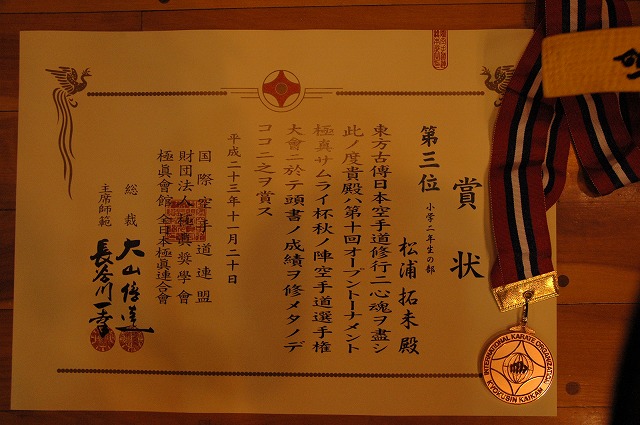 賞状
第三位
小学二年生の部
松浦拓未殿
東方古傳日本空手道修行ニ心魂ヲ盡シ
此ノ度貴殿ハ第十回オープントーナメント
極真サムライ杯秋ノ陣空手道選手権
大會ニ於テ頭書ノ成績ヲ修メタノデ
ココニ之ヲ賞ス
平成二十三年十一月二十日
国際空手道連盟
財団法人極真奨学會
極真會館 全日本極真連合會
総裁 大山倍達
主席師範 長谷川一幸
INTERNATIONAL KARATE ORGANIZATION
KYOKUSHIN KAIKAN